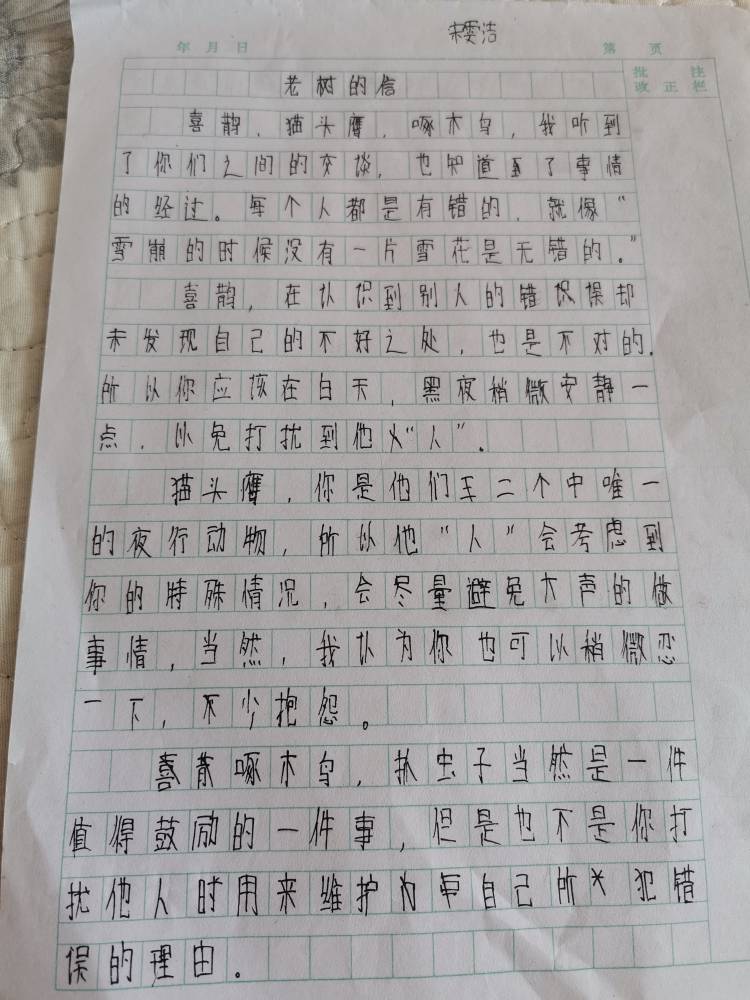 宋雯洁
年 月 日 第 页
批 注
改 正 栏
老树的信
喜鹊，猫头鹰，啄木鸟，我听到
了你们之间的交谈，也知道了事情
的经过。每个人都是有错的，就像“
雪崩的时候没有一片雪花是无错的。”
喜鹊，在认识到别人的错误却
未发现自己的不好之处，也是不对的.
所以你应该在白天，黑夜稍微安静一
点，以免打扰到他“人”。
猫头鹰，你是他们三个中唯一
的夜行动物，所以他“人”会考虑到
你的特殊情况，会尽量避免大声的做
事情，当然，我认为你也可以稍微忍
一下，不少抱怨。
啄木鸟，抓虫子当然是一件
值得鼓励的一件事，但是也不是你打
扰他人时用来维护自己所犯错
误的理由。